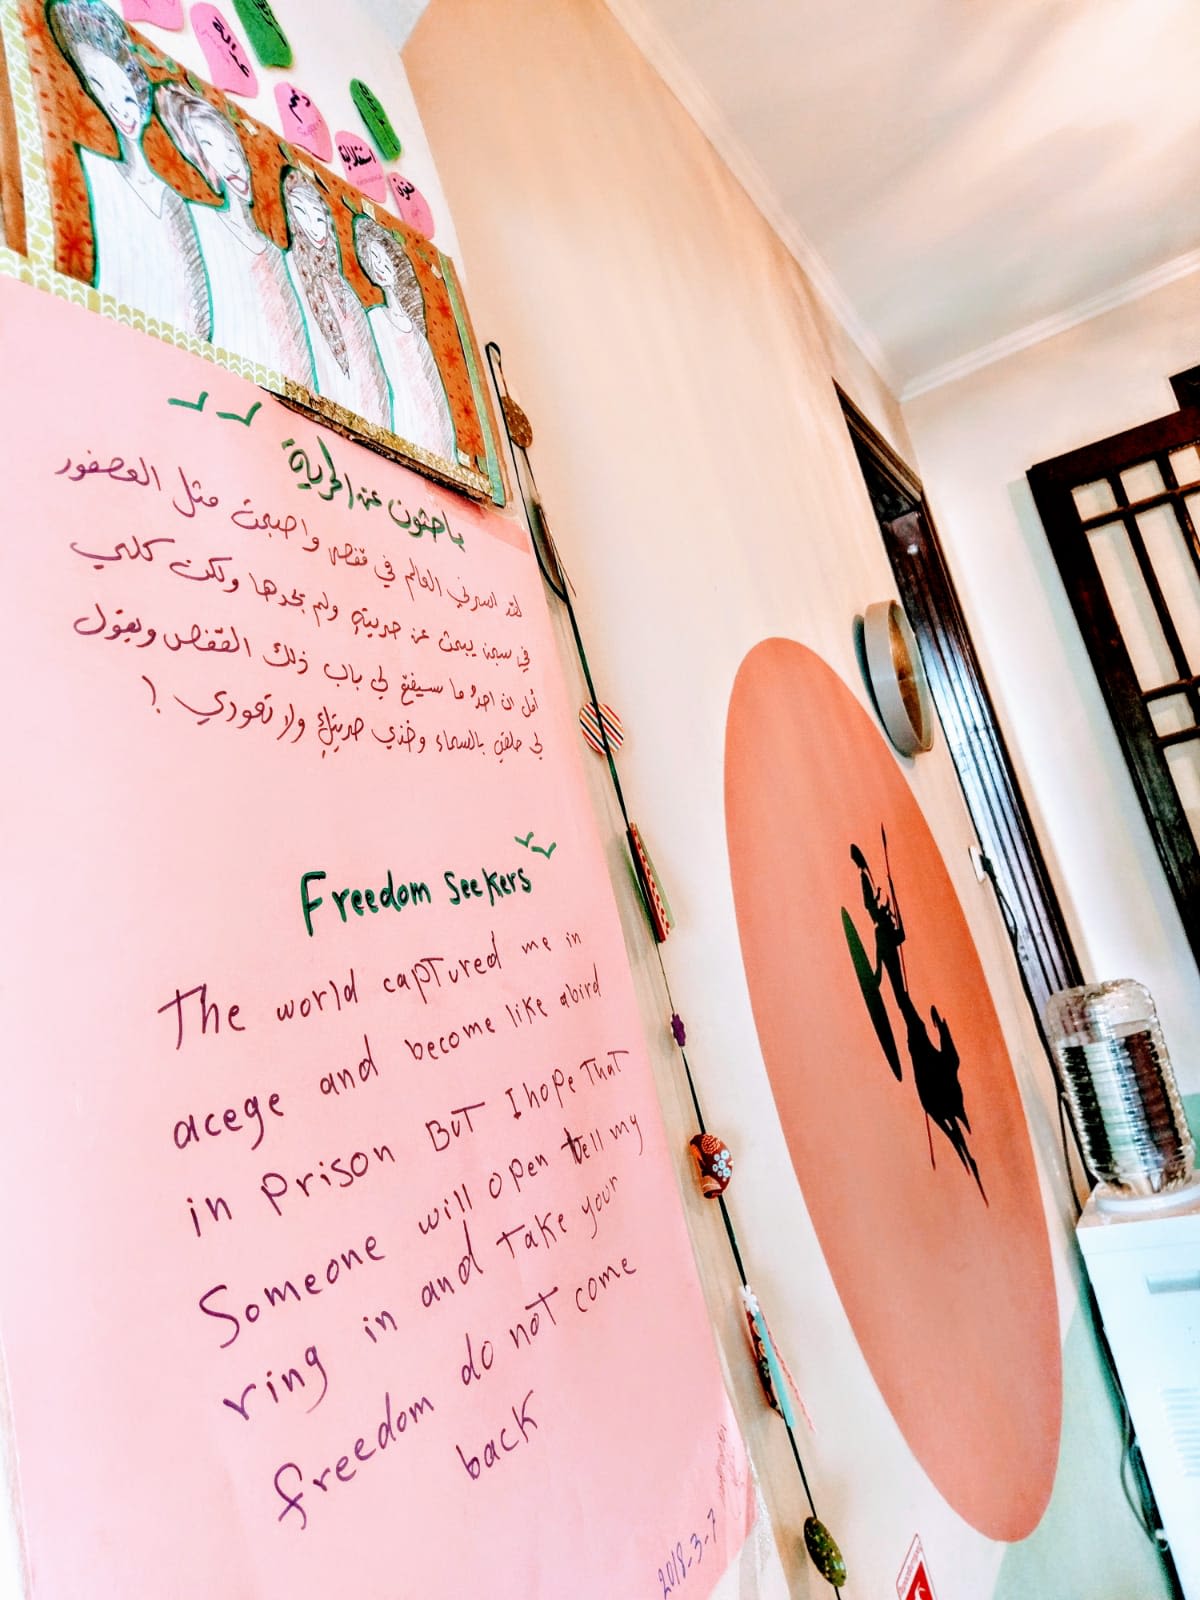 عدالة
دعم
Support
استقلالية
باحثون عن الحرية
لقد اسرني العالم في قفصه واصبحت مثل العصفور
في سجن يبحث عن حريته ولم يجدها ولكن كلي
أمل ان احدهُ ما سيفتح لي باب ذلك القفص ويقول
لي حلقي بالسماء وخذي حريتكِ ولا تعودي !
Freedom seekers
The world captured me in
acege and become like abird
in prison BuT I hope That
Someone will open tell my
ring in and take your
freedom do not come
back
2018-3-7